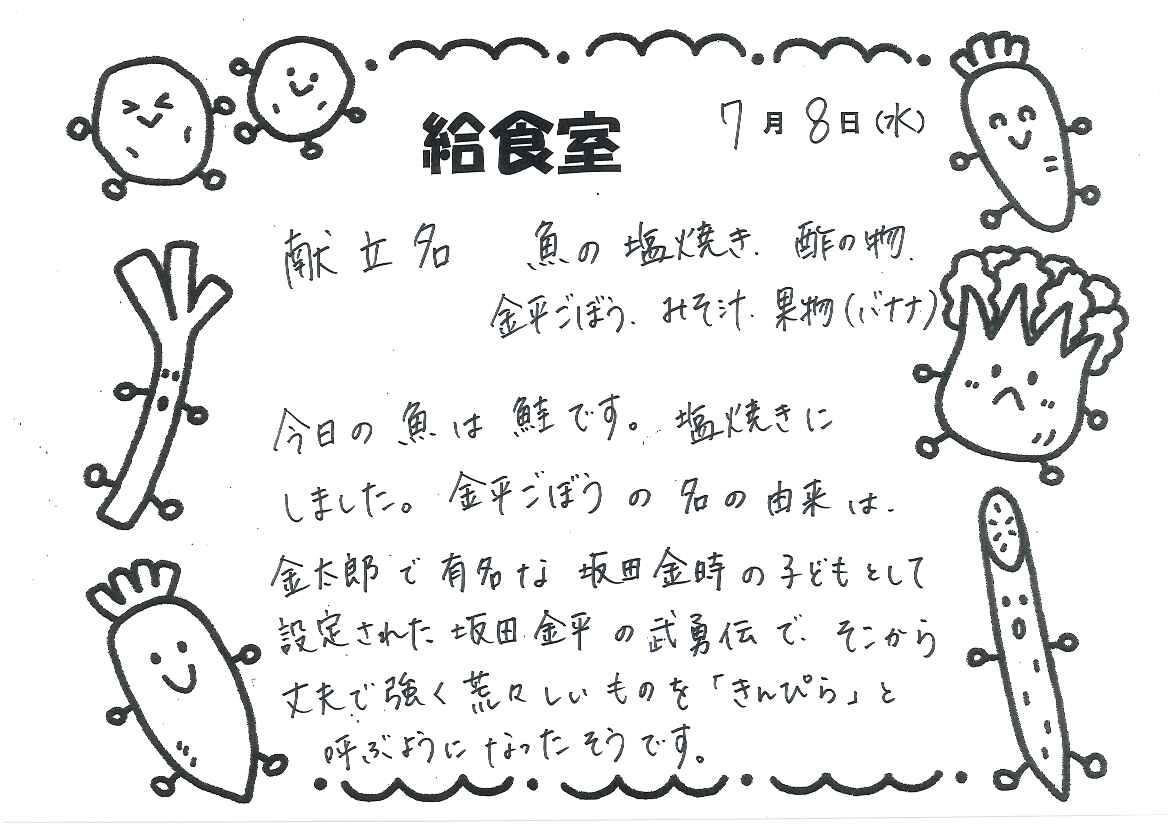 給食室
7月8日(水)
献立名 魚の塩焼き、酢の物、
金平ごぼう、みそ汁、果物(バナナ)
今日の魚は鮭です。塩焼きに
しました。金平ごぼうの名の由来は、
金太郎で有名な坂田金時の子どもとして
設定された坂田金平の武勇伝で、そこから
丈夫で強く荒々しいものを「きんぴら」と
呼ぶようになったそうです。